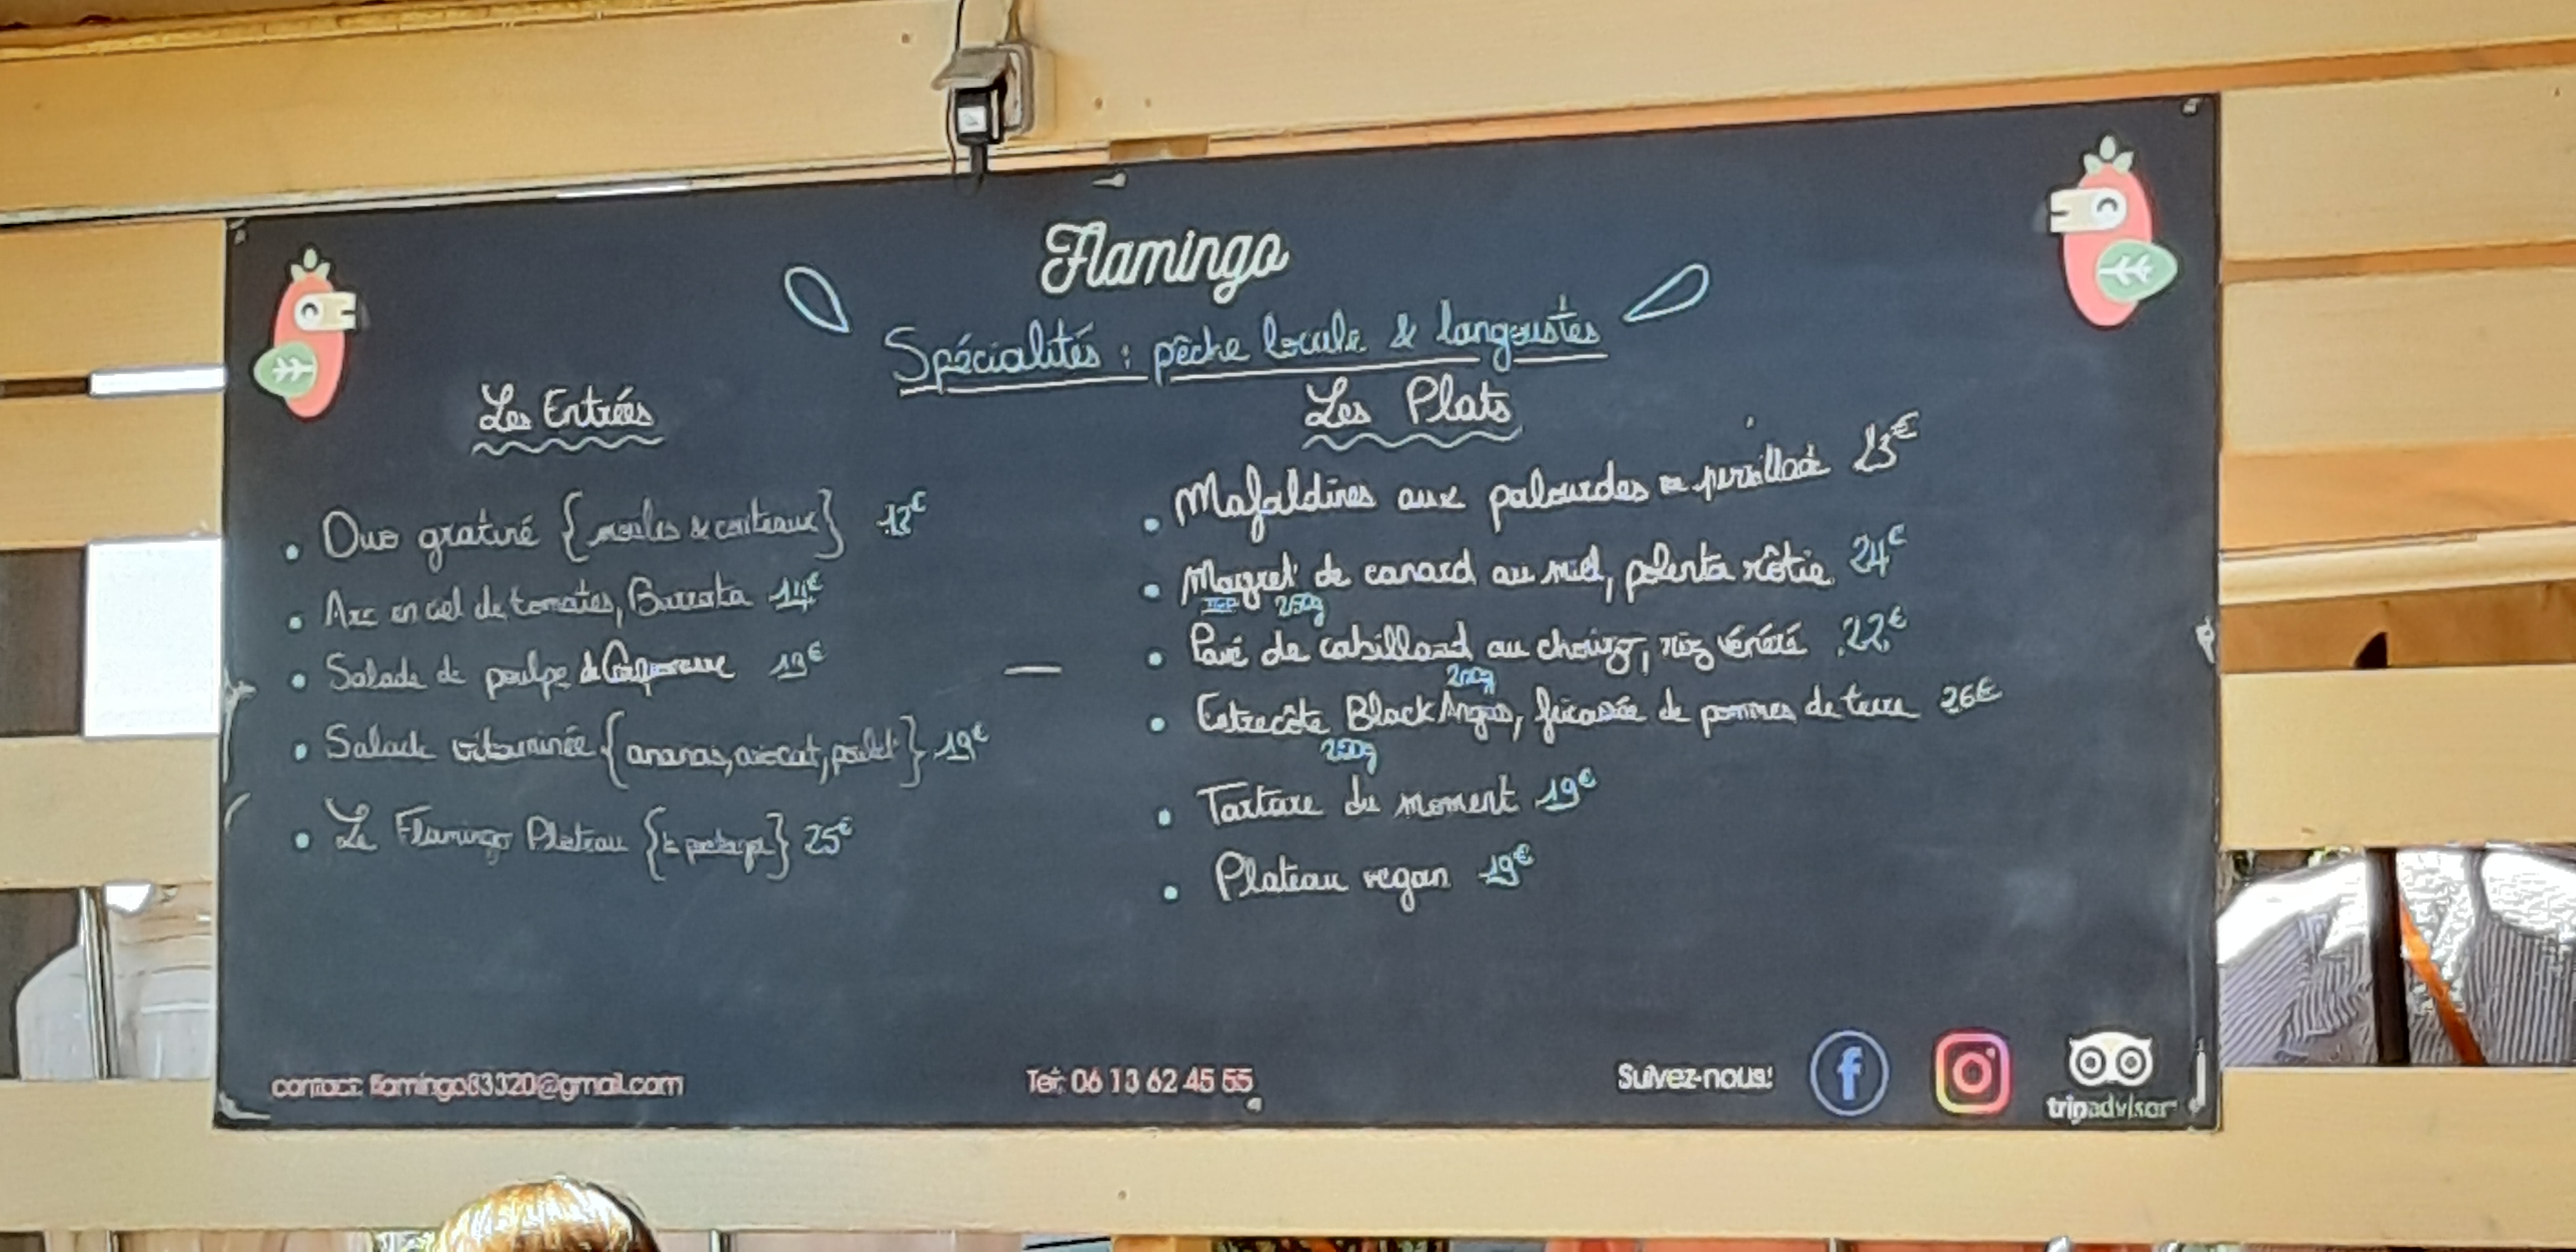 Flamingo
Spécialités : pêche locale & langoustes
Les Entrées
• Duo gratiné {moules & couteaux} 12€
• Arc en ciel de tomates, Burrata 14€
• Salade de poulpe de 19€
• Salade vitaminée {ananas, avocat, poulet} 19€
• Le Flamingo Plateau {à partager} 25€
Les Plats
• Mafaldines aux palourdes en persillade 23€
• Magret de canard au miel, polenta rôtie 24€
250g
• Pavé de cabillaud au chorizo, riz vénéré 22€
200g
• Entrecôte Black Angus, fricassée de pommes de terre 26€
250g
• Tartare du moment 19€
• Plateau vegan 19€
contact: flamingo83320@gmail.com
Tel: 06 13 62 45 55
Suivez-nous!
tripadvisor